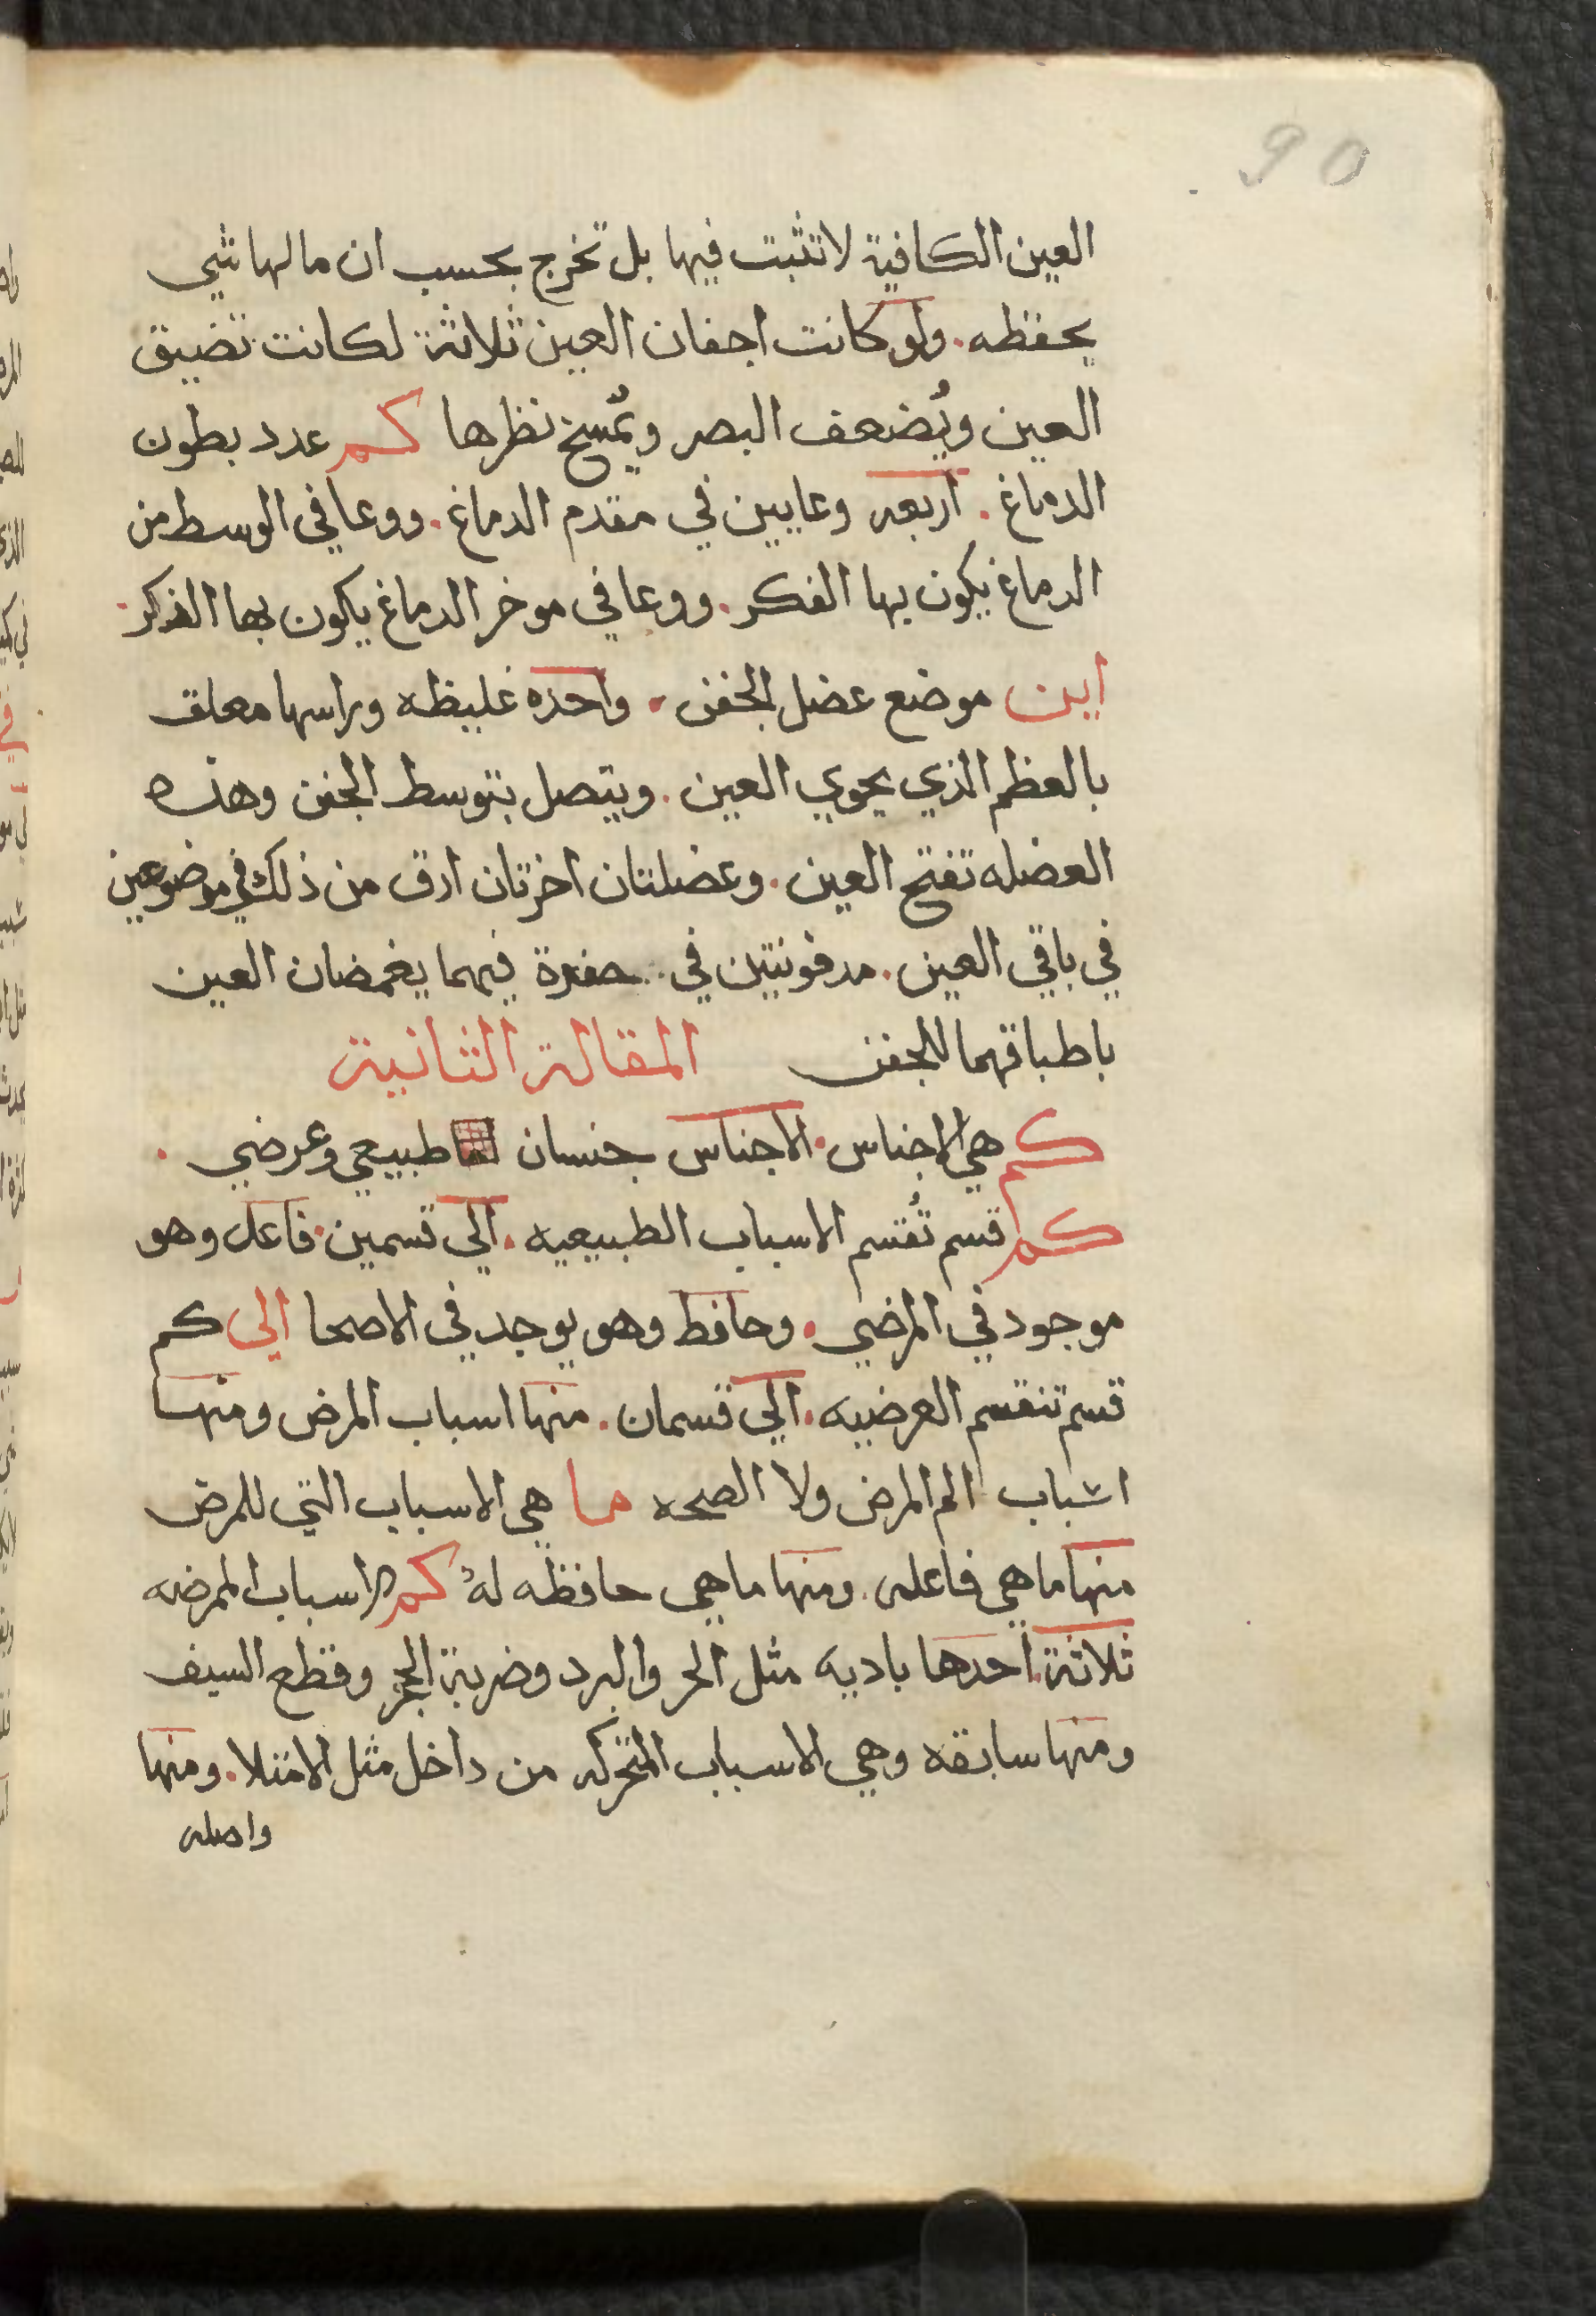 90
العين الكافية لا تثبت فيها بل تخرج بحسب ان ما لها شي
يحفظه. ولو كانت اجفان العين ثلاثة لكانت تضيق
العين ويُضعف البصر ويُمسخ نظرها كم عدد بطون
الدماغ. اربعه وعايين في مقدم الدماغ. ووعا في الوسط من
الدماغ يكون بها الفكر. ووعا في موخر الدماغ يكون بها الذكر.
اين موضع عضل الجفن. واحده غليظه وراسها معلق
بالعظم الذي يحوي العين. ويتصل بتوسط الجفن وهذه
العضله تفتح العين. وعضلتان اخرتان ارق من ذلك في موضوعين
في باقي العين. مدفونتين في حفرة فيهما يغمضان العين
باطباقهما للجفن المقالة الثانية
كم هي الاجناس. الاجناس جنسان طبيعي وعرضي.
كم قسم تُقسم الاسباب الطبيعيه. الي قسمين. فاعل وهو
موجود في المرضي. وحافظ وهو يوجد في الاصحا الي كم
قسم تنقسم العرضيه. الي قسمان. منها اسباب المرض ومنها
اشباب الم المرض ولا الصحه ما هي الاسباب التي للمرض
منها ما هي فاعله. ومنها ما هي حافظه لهُ كم الاسباب الممرضه
ثلاثة. احدها باديه مثل الحر والبرد وضربة الحجر وقطع السيف
ومنها سابقه وهي الاسباب المتحركه من داخل مثل الامتلا. ومنها
واصله